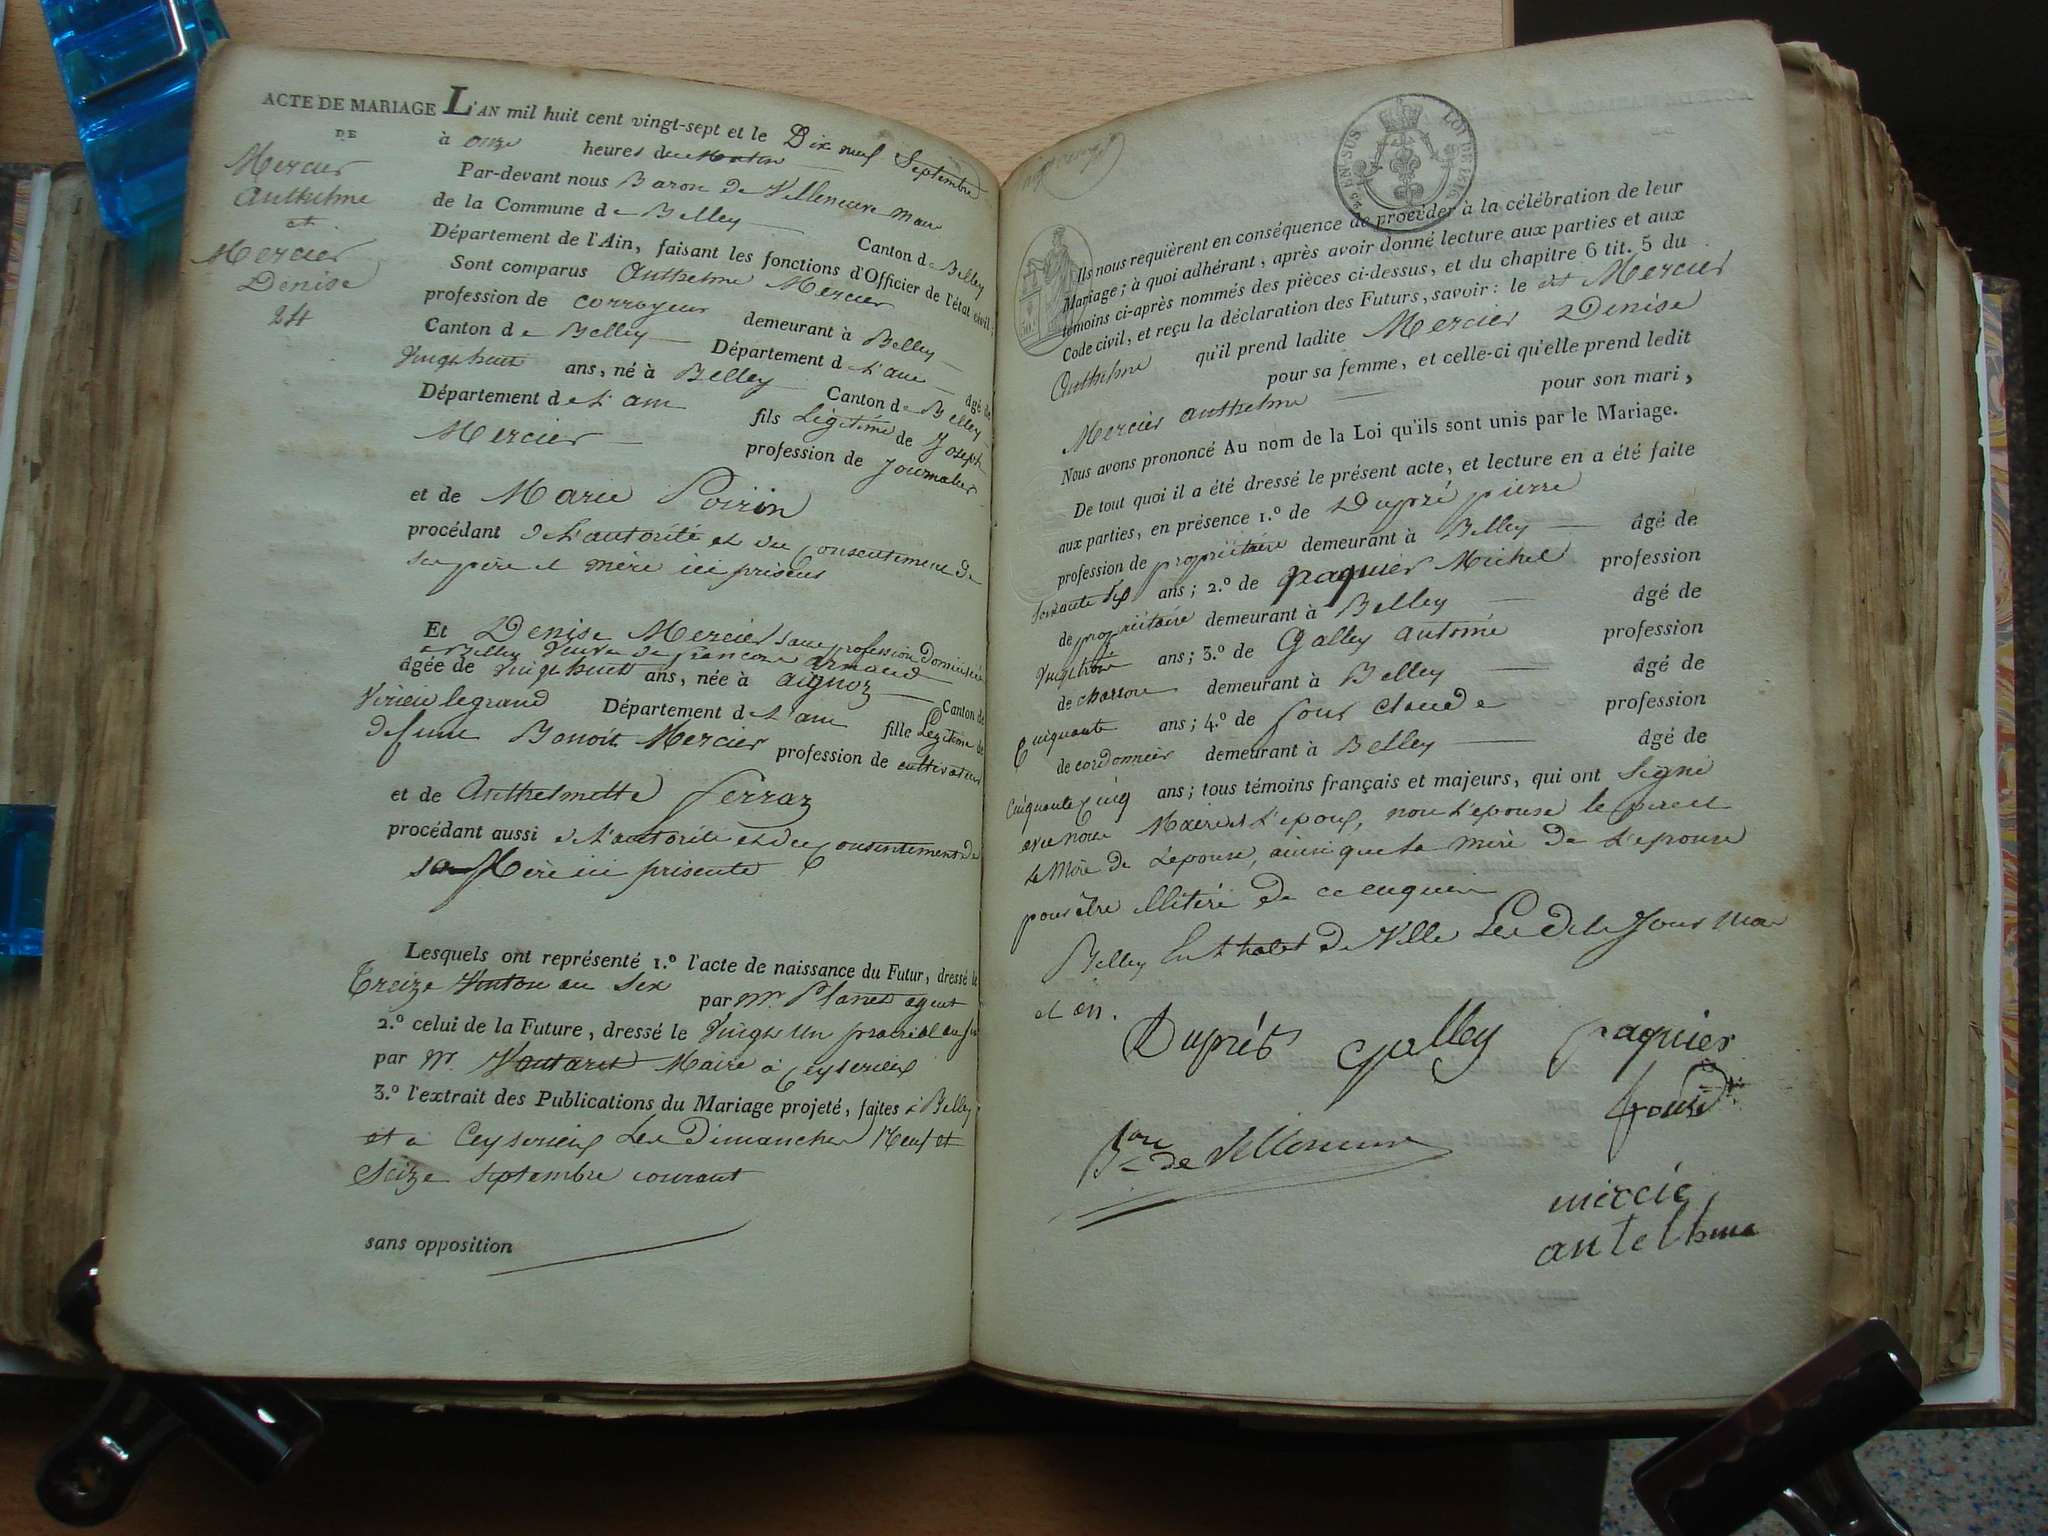 ACTE DE MARIAGE L'AN mil huit cent vingt-sept et le Dix neuf Septembre
DE
à onze heures du Matin
Mercier
Anthelme
et
Mercier
Denise
24
Par-devant nous Baron de Villeneuve Maire
de la Commune de Belley Canton de Belley
Département de l'Ain, faisant les fonctions d'Officier de l'état civil,
Sont comparus Anthelme Mercier
profession de corroyeur demeurant à Belley
Canton de Belley Département de L'ain âgé de
Vingt huit ans, né à Belley Canton de Belley
Département de L'ain fils Légitime de Joseph
Mercier profession de Journalier
et de Marie Poirin
procédant de L'autorité et du Consentement de
ses père et mère ici présens
Et Denise Mercier sans profession Domiciliée
a Belley Veuve de françois Armand
âgée de Vingt huit ans, née à aignoz Canton de
Virieu le grand Département de L'ain fille Légitime de
defunt Benoit Mercier profession de cultivateur
et de Anthelmette Ferraz
procédant aussi de L'autorité et du Consentement de
sa Mère ici présente
Lesquels ont représenté 1.º l'acte de naissance du Futur, dressé le
Treize Ventose an Six par Mr Planet agent
2.º celui de la Future, dressé le Vingt un prairial an
par Mr. Maire à Ceyserieux
3.º l'extrait des Publications du Mariage projeté, faites à Belley
et à Ceyserieux Les Dimanches Neuf et
Seize septembre courant
sans opposition
25 c. EN SUS LOI DE 1816
Ils nous requièrent en conséquence de procéder à la célébration de leur
Mariage; à quoi adhérant, après avoir donné lecture aux parties et aux
témoins ci-après nommés des pièces ci-dessus, et du chapitre 6 tit. 5 du
Code civil, et reçu la déclaration des Futurs, savoir: le dt Mercier
Anthelme qu'il prend ladite Mercier Denise
pour sa femme, et celle-ci qu'elle prend ledit
Mercier Anthelme pour son mari,
Nous avons prononcé Au nom de la Loi qu'ils sont unis par le Mariage.
De tout quoi il a été dressé le présent acte, et lecture en a été faite
aux parties, en présence 1.º de Dupré pierre
profession de propriétaire demeurant à Belley âgé de
Soixante dix ans; 2.º de paquier Michel profession
de propriétaire demeurant à Belley âgé de
Vingt trois ans; 3.º de Galley antoine profession
de charron demeurant à Belley âgé de
Cinquante ans; 4.º de Claude profession
de cordonnier demeurant à Belley âgé de
Cinquante Cinq ans; tous témoins français et majeurs, qui ont Signé
avec nous Maire et L'epoux, non L'epouse le père et
la Mère de L'epoux, ainsi que la mère de L'epouse
pour être illitéré de ce enquis
Belley En L'hotel de Ville Les dits Jour Mois
et an.
Duprés Galley paquier
Bon de Villeneuve
mercié
antelhme